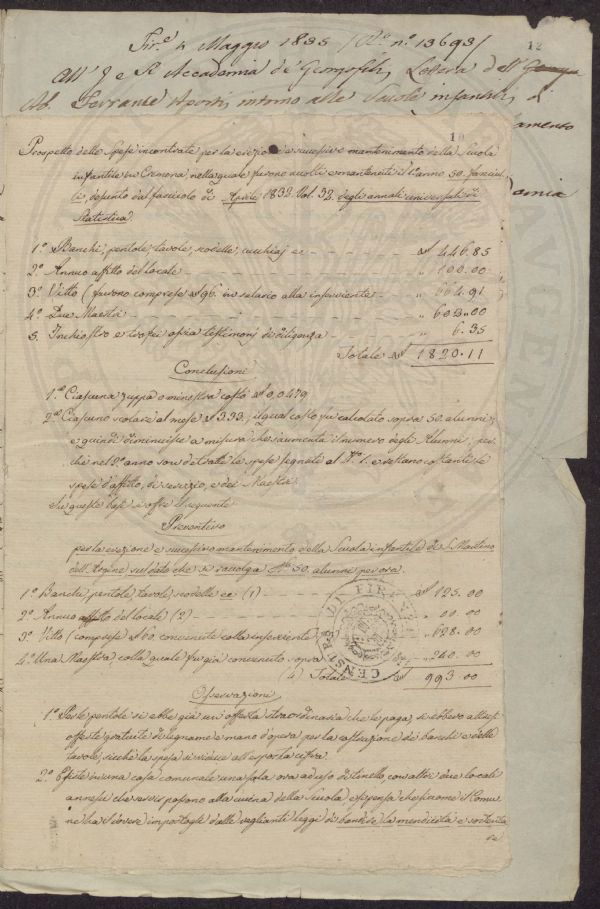 Fir.e 4 Maggio 1835 (A.e n.o 13693)
12
All' I e R Accademia de' Georgofili, Lettera dell'
Ab. Ferrante Aporti, intorno alle Scuole infantili, di
amento
10
Prospetto delle spese incontrate per la erezione e successivo mantenimento della Scuola
infantile in Cremona, nella quale furono accolti e mantenuti il 1.o anno 50. fanciul-
li, desunto dal fascicolo di Aprile 1832. Vol. 32. degli annali universali di
Statistica.
omia
1.o Banchi, pentole, tavole, scodelle, cucchiaj ec. 446.85
2.o Annuo affitto del locale „ 100.00
3.o Vitto (furono comprese 96. in salario alla inserviente „ 664.91
4.o Due Maestre „ 603.00
5. Inchiostro e trofei ossia testimonj di diligenza „ 6.35
Totale 1820.11
Conclusioni
1.a Ciascuna zuppa o minestra costò 0,0479
2.a Ciascuno scolare al mese 3.33; il qual costo fu calcolato sopra 50. alunni;
e quindi diminuisce a misura che s'aumenta il numero degli Alunni, per-
chè nel 2.o anno sono detratte le spese segnate al N.o 1. e restano costanti le
spese d'affitto, di servizio, e dei Maestri.
Su queste basi si offre il seguente
Preventivo
per la erezione e successivo mantenimento della Scuola infantile di S. Martino
dell'Argine, sul dato che si raccolga N.o 50. alunni per ora.
1.o Banchi, pentole, tavole, scodelle ec (1) 125.00
2.o Annuo affitto del locale (2) „ 00.00
3.o Vitto (comprese 60. convenute colla inserviente „ 628.00
4.o Una Maestra colla quale fu già convenuto sopra „ 240.00
(4) Totale 993.00
CENSURA DI FIRENZE
Osservazioni
1.o Per le pentole si ebbe già un' offerta straordinaria che le paga, si ebbero altresì
offerte gratuite di legname e mano d'opera per la costruzione dei banchi e delle
tavole, sicchè la spesa si riduce all'esposta cifra.
2.o Esiste in una casa comunale una sola ora ad uso di tinello, con altri due locali
annessi che servir possono alla cucina della Scuola e dispensa che siccome il Comu-
ne ha il dovere impostogli dalle veglianti leggi di bandire la mendicità e sostenta
re